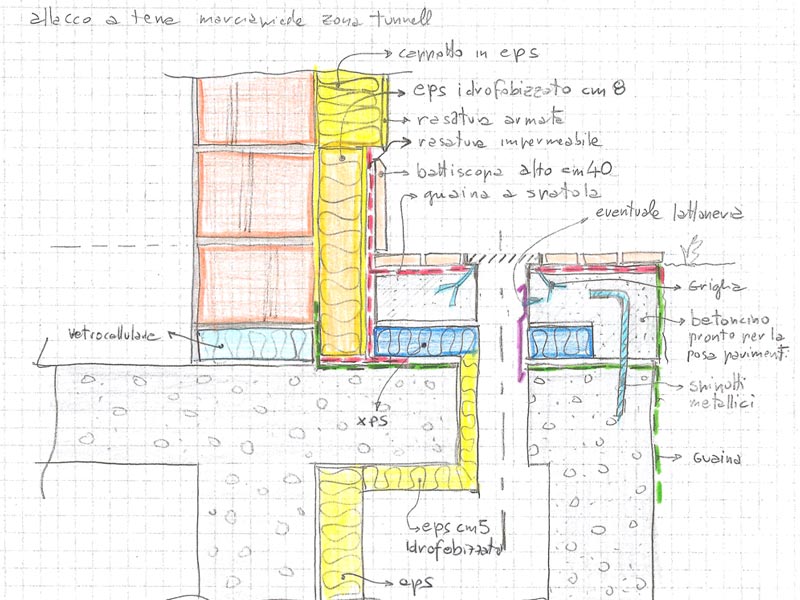 attacco a terra marciapiede zona tunnell
cappotto in eps
eps idrofobizzato cm 8
rasatura armata
rasatura impermeabile
battiscopa alto cm 40
guaina a spatola
eventuale lattoneria
Griglia
betoncino
pronto per la
posa paviment.
spinotti
metallici
Guaina
vetrocellulare
xps
eps cm5
idrofobizzato
eps